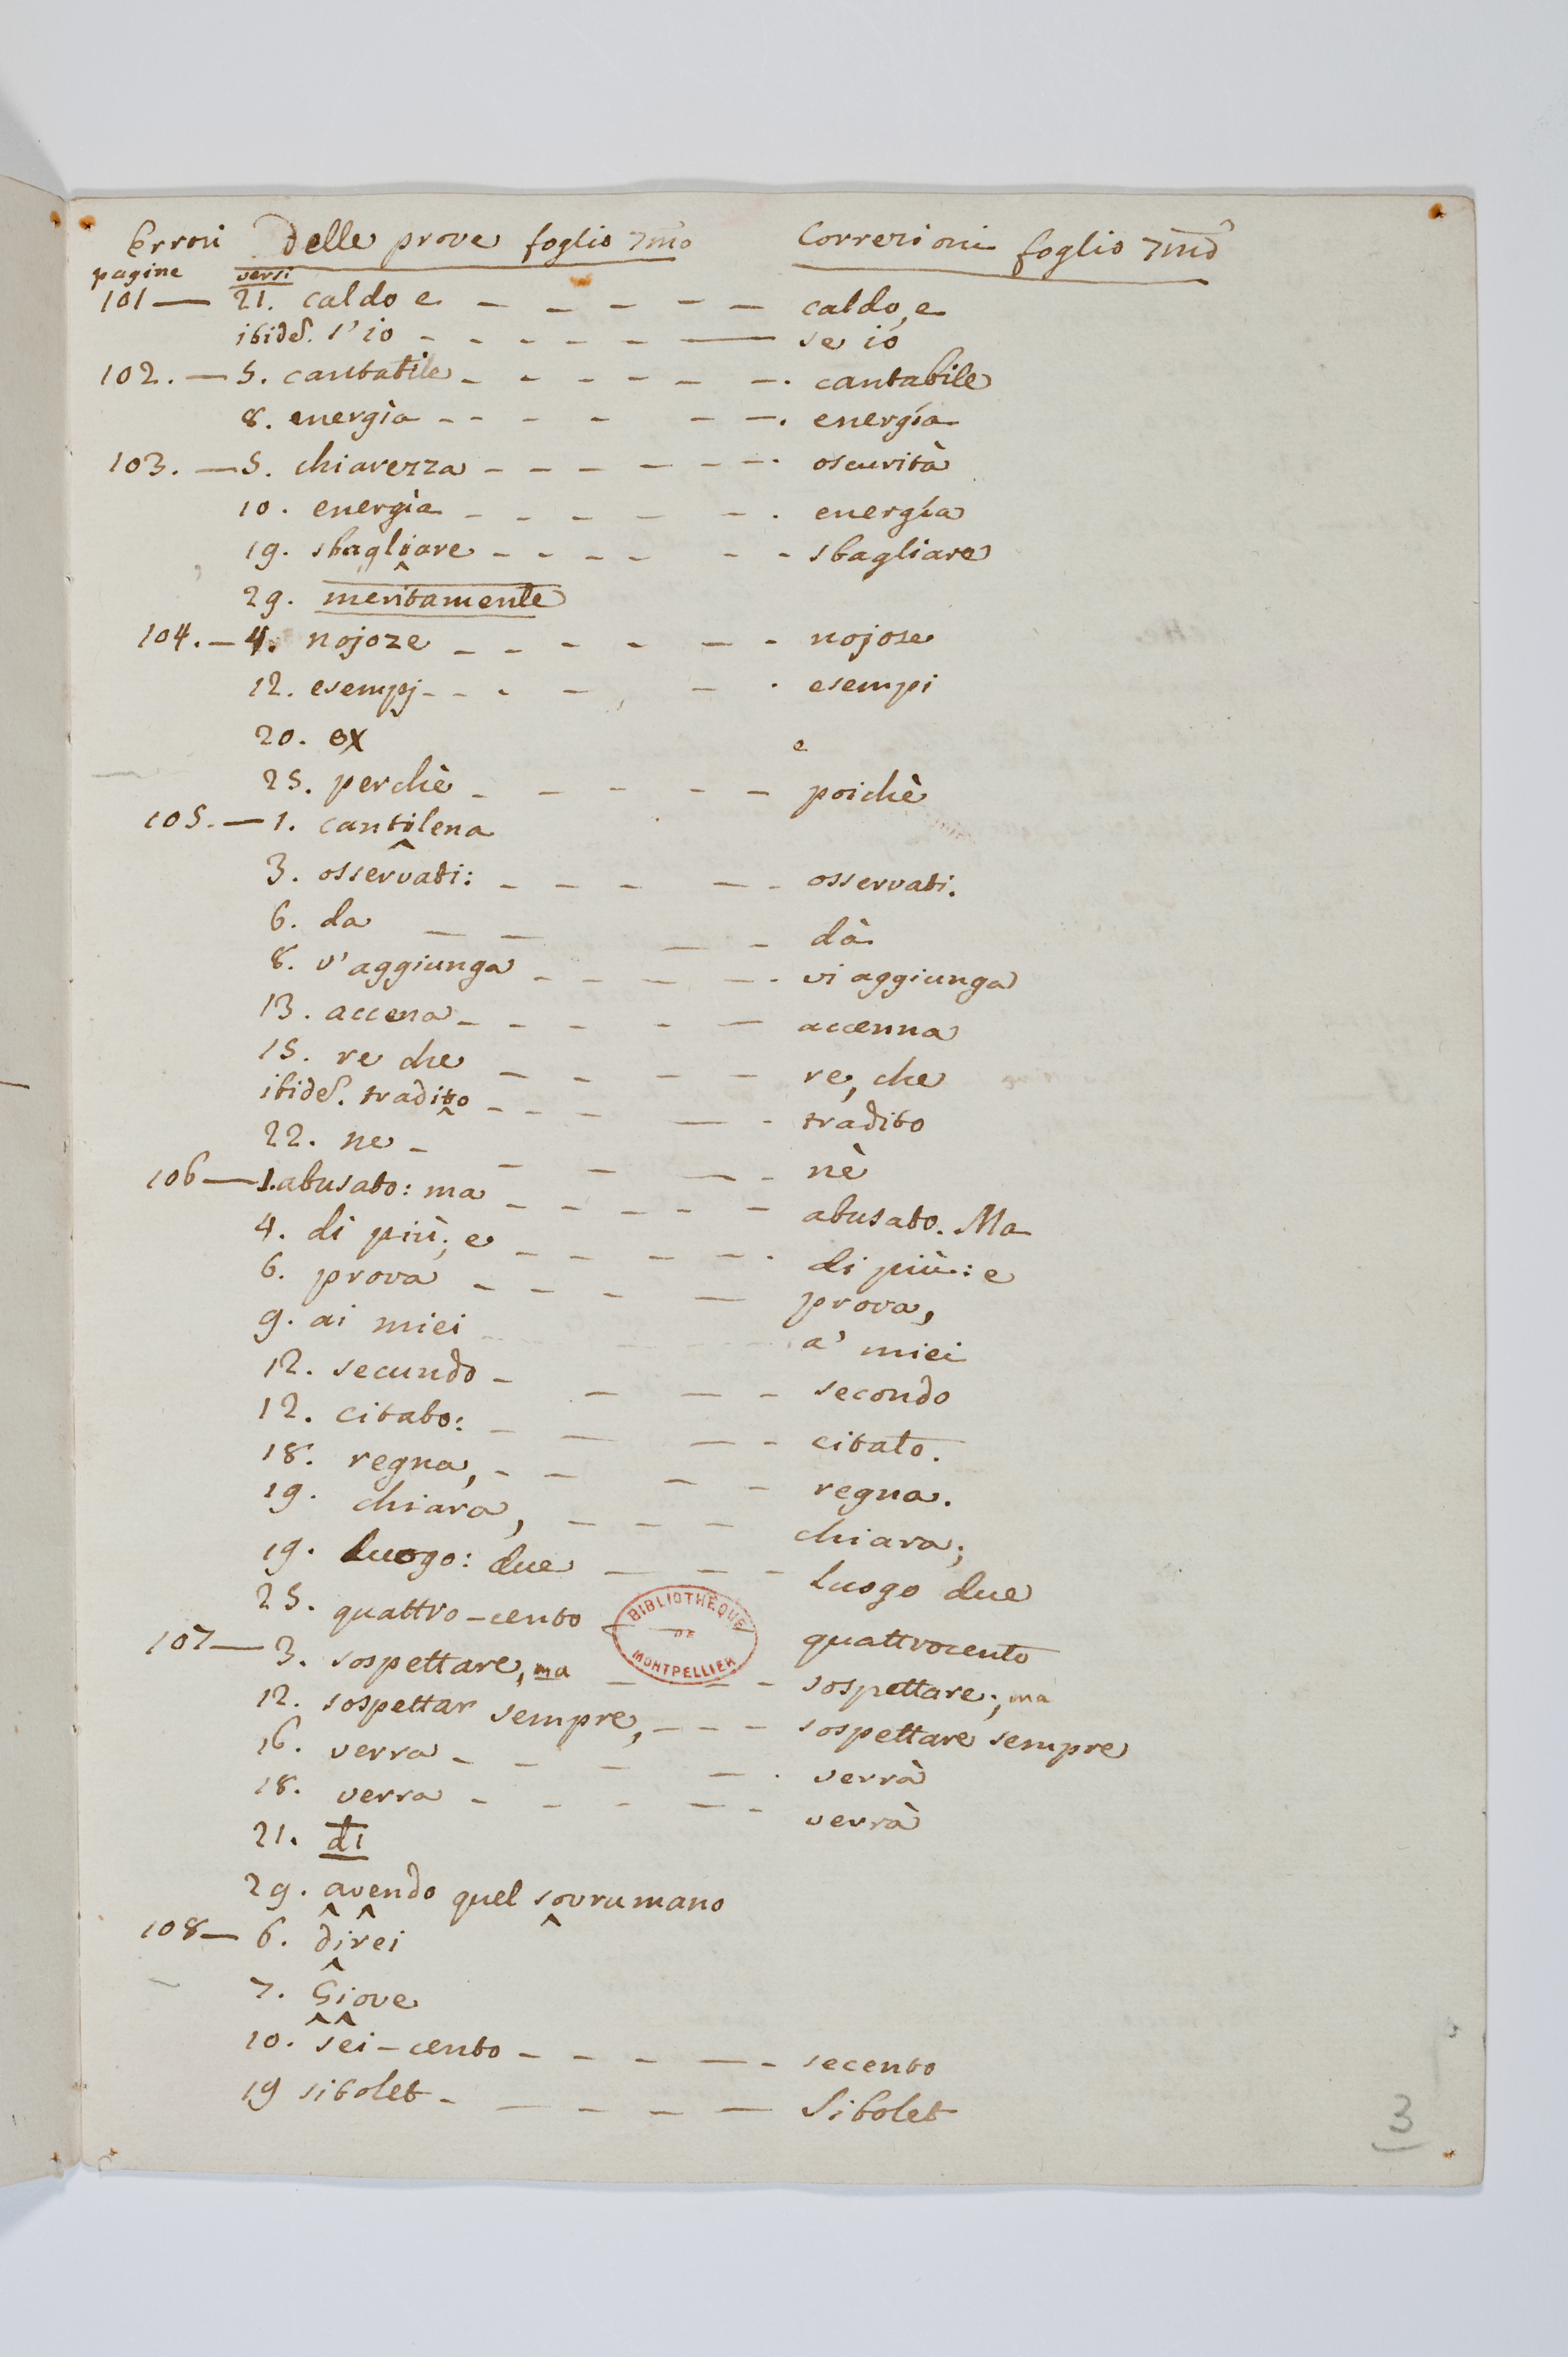 Errori Delle prove foglio 7mo Correzioni foglio 7mo
pagine versi
101 — 21. caldo e - - - - - caldo, e
ibide. s'io - - - - - — se io
102. — 5. cantatile - - - - - -. cantabile
8. energìa - - - - - -. energía
103. — 5. chiarezza - - - - - - -. oscurità
10. energìa - - - - - . energía
19. sbagliare - - - - - - sbagliare
29. meritamente
104. — 4. nojoze - - - - - - nojose
12. esempj - - - - - . esempi
20. ex e
25. perchè - - - - - poichè
105. — 1. cantilena
3. osservati: - - - - - osservati.
6. da — — — - dà
8. v'aggiunga - - - - -. vi aggiunga
13. accena - - - - - — accenna
15. re che - - - - - re, che
ibide. tradito - - - — - tradito
22. ne - - - — - nè
106 — 1. abusato: ma - - - - - - abusato. Ma
4. di più; e - - - - - . di più: e
6. prova - - - - — prova,
9. ai miei a' miei
12. secundo - - - - secondo
12. citato: - — — - citato.
18. regna, - - - - regna.
19. chiara, - - - chiara;
19. luogo: due — - - - luogo due
25. quattro-cento quattrocento
BIBLIOTHÈQUE
DE
MONTPELLIER
107 — 3. sospettare, ma - - - - sospettare; ma
12. sospettar sempre, - - - - sospettare sempre
16. verra - - - - . verrà
18. verra - - - - - verrà
21. di
29. avendo quel sovrumano
108 — 6. direi
7. Giove
10. sei-cento - - - — - secento
19 sibolet - — - - — Sibolet
3